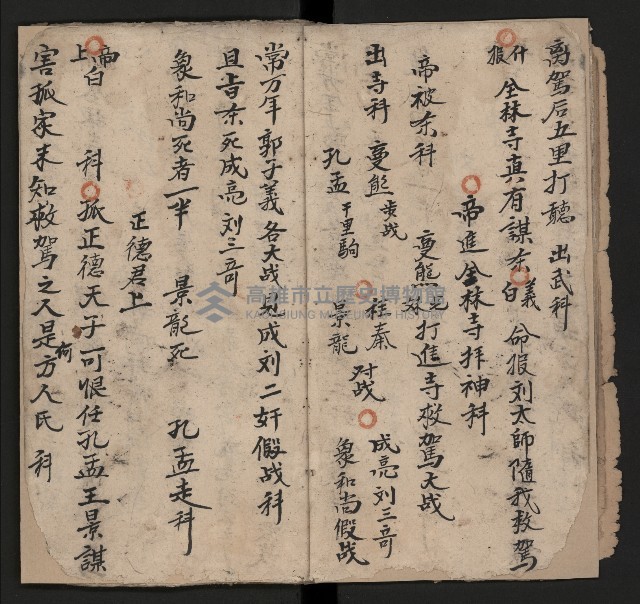 离驾后五里打聽 出武科
什报 全林寺真有謀 義白 命报刘太師隨我救驾
帝進全林寺拜神科
帝被 科 打進寺救驾大战
出寺科 步战 桂秦 对战 成亮刘三奇
孔孟 千里駒 景龍 象和尚假战
常万年 郭子義各大战 成刘二奸假战科
且 死成亮刘三奇
象和尚死者一半 景龍死 孔孟走科
正德君上
帝上白 科 孤正德天子可恨任孔孟王景謀
害孤家未知救驾之人是何方人氏 科
高雄市立歷史博物館
KAOHSIUNG MUSEUM OF HISTORY